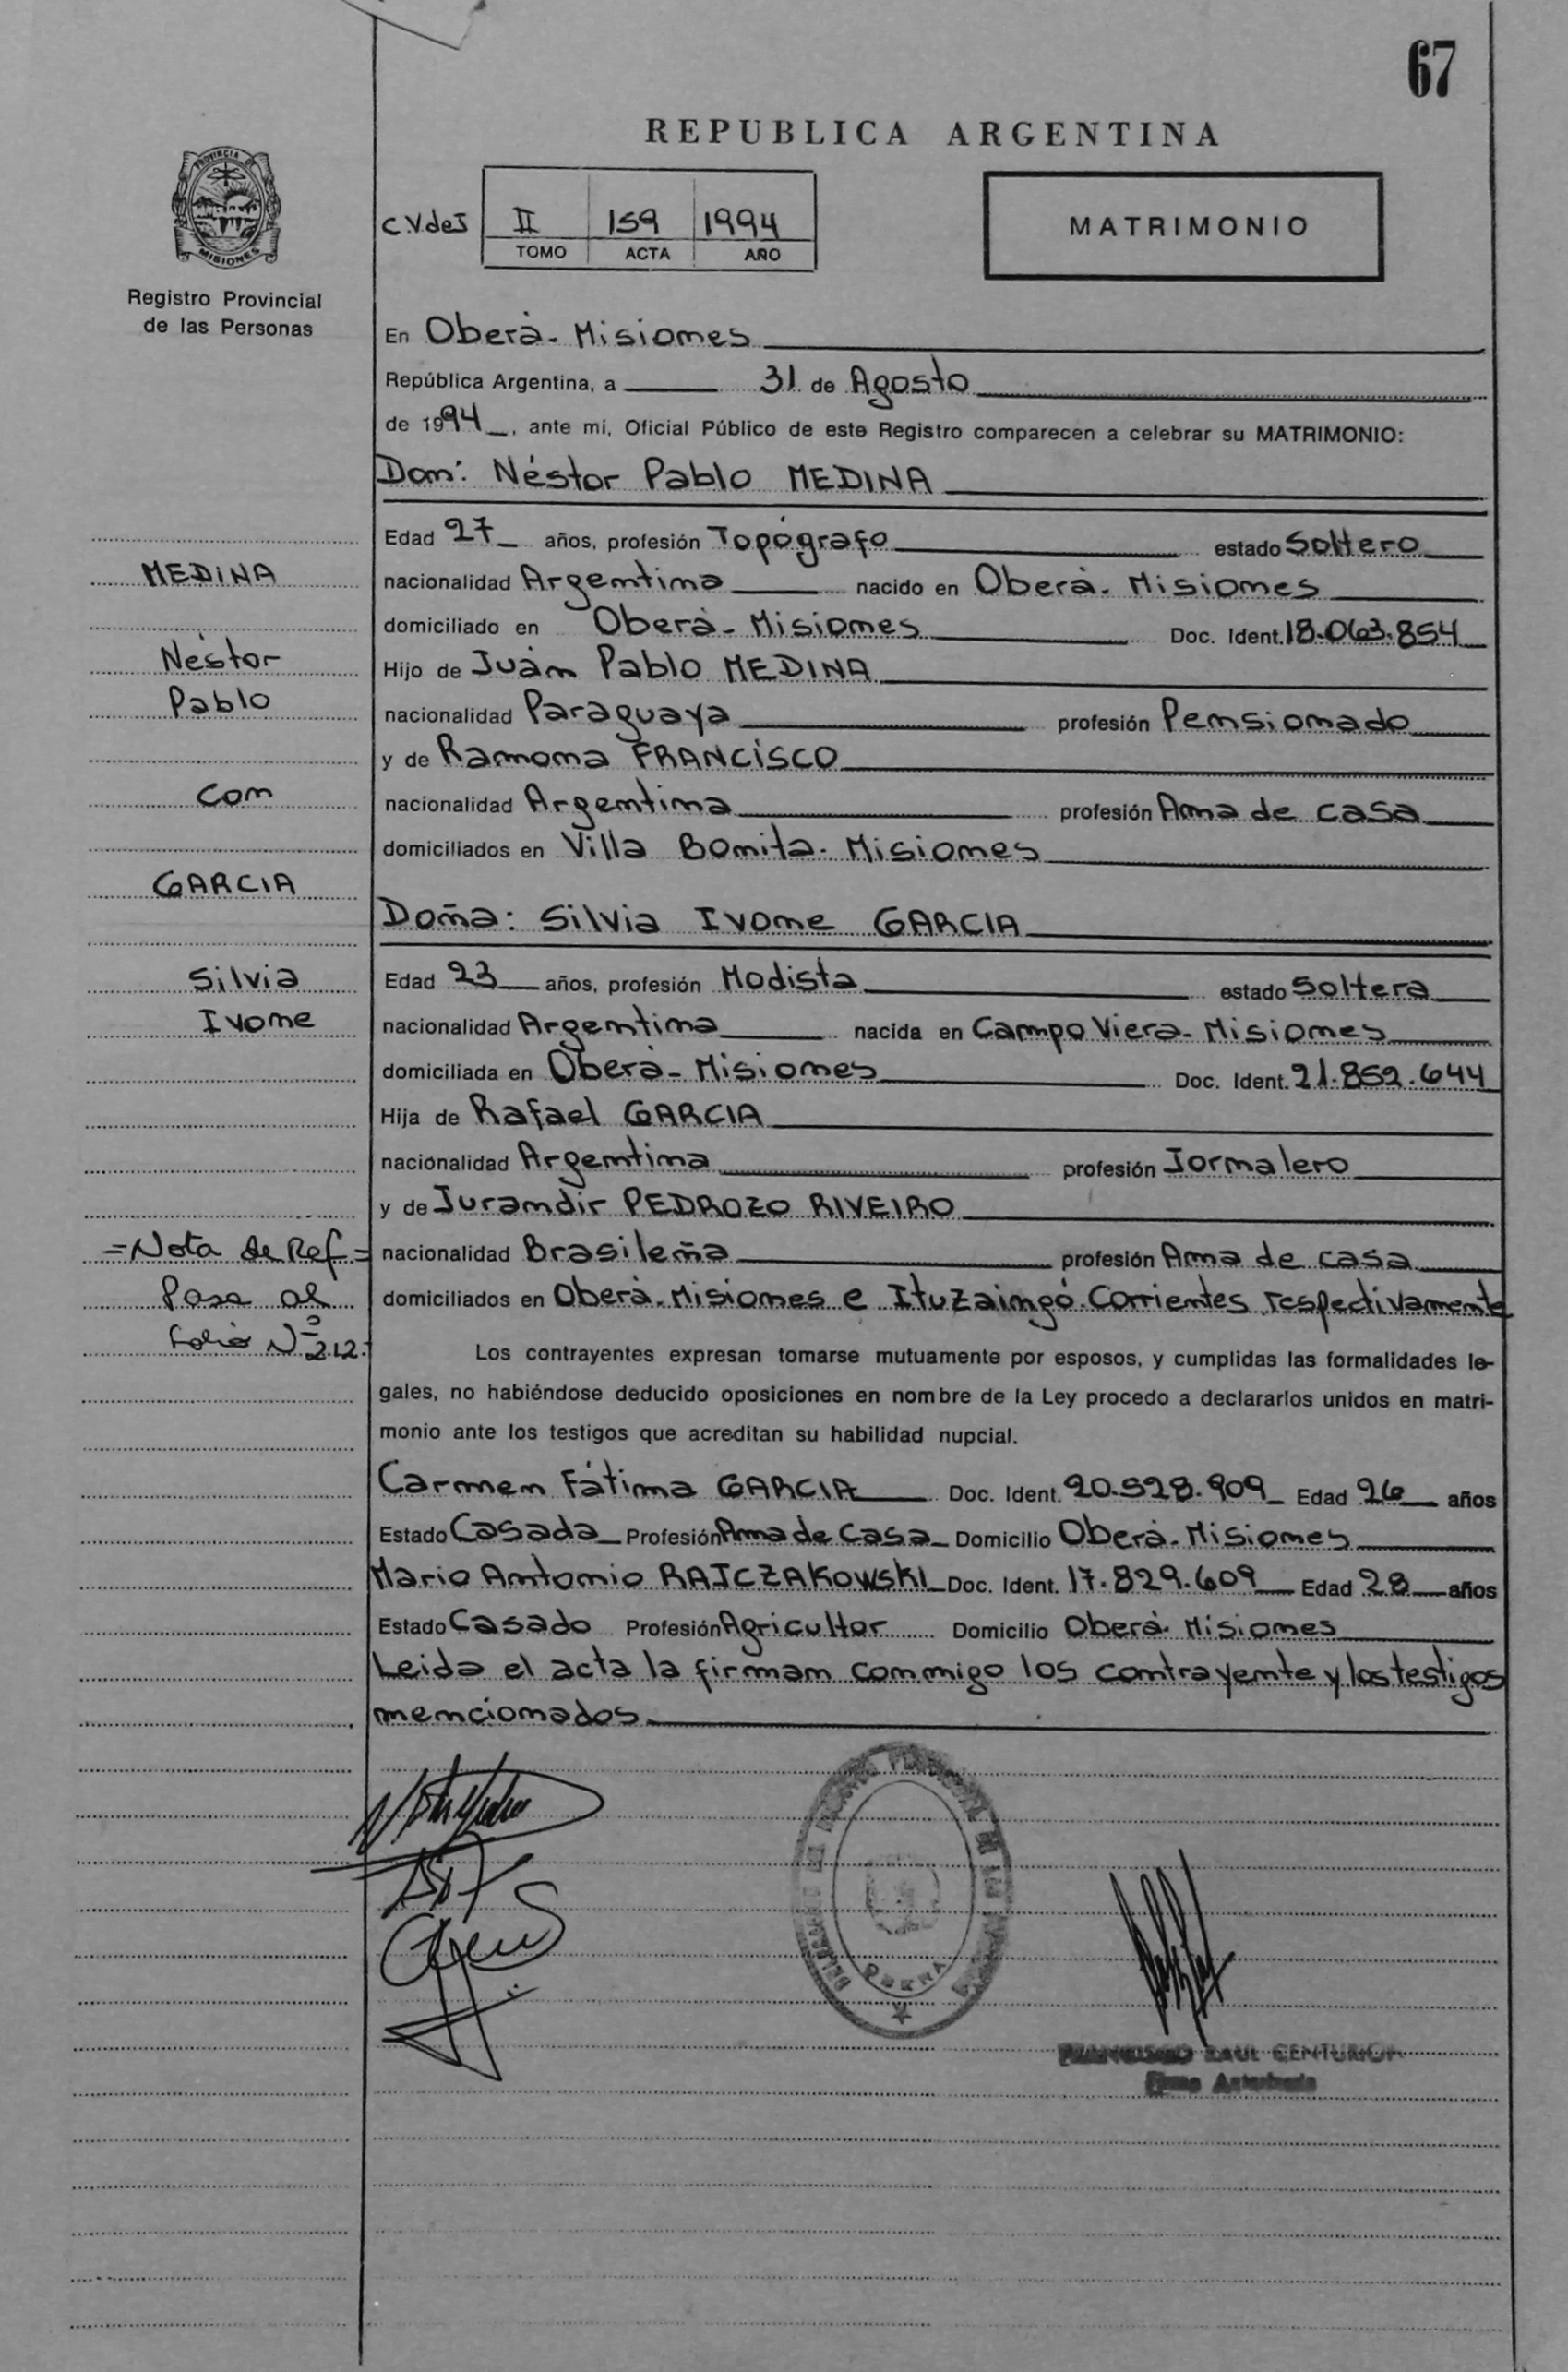 67
REPUBLICA ARGENTINA
PROVINCIA DE
MISIONES
Registro Provincial
de las Personas
C.V.deJ II 159 1994
TOMO ACTA AÑO
MATRIMONIO
En Oberá- Misiones
República Argentina, a 31 de Agosto
de 1994, ante mí, Oficial Público de este Registro comparecen a celebrar su MATRIMONIO:
Don: Néstor Pablo MEDINA
Edad 27 años, profesión Topógrafo estado Soltero
nacionalidad Argentina nacido en Oberá- Misiones
domiciliado en Oberá- Misiones Doc. Ident. 18.063.854
Hijo de Juán Pablo MEDINA
nacionalidad Paraguaya profesión Pensionado
y de Ramona FRANCISCO
nacionalidad Argentina profesión Ama de casa
domiciliados en Villa Bonita- Misiones
Doña: Silvia Ivone GARCIA
Edad 23 años, profesión Modista estado Soltera
nacionalidad Argentina nacida en Campo Viera- Misiones
domiciliada en Oberá- Misiones Doc. Ident. 21.852.644
Hija de Rafael GARCIA
nacionalidad Argentina profesión Jornalero
y de Jurandir PEDROZO RIVEIRO
nacionalidad Brasileña profesión Ama de casa
domiciliados en Oberá-Misiones e Ituzaingó-Corrientes respectivamente
Los contrayentes expresan tomarse mutuamente por esposos, y cumplidas las formalidades le-
gales, no habiéndose deducido oposiciones en nombre de la Ley procedo a declararlos unidos en matri-
monio ante los testigos que acreditan su habilidad nupcial.
Carmen Fátima GARCIA Doc. Ident. 20.528.909 Edad 26 años
Estado Casada Profesión Ama de Casa Domicilio Oberá- Misiones
Mario Antonio RAJCZAKOWSKI Doc. Ident. 17.829.609 Edad 28 años
Estado Casado Profesión Agricultor Domicilio Oberá- Misiones
Leida el acta la firman conmigo los contrayente y los testigos
mencionados
MEDINA
Néstor
Pablo
con
GARCIA
Silvia
Ivone
=Nota de Ref=
Pasa al
folio Nº 212.-
OBERA
RAUL CENTURION
Firma Autorizada